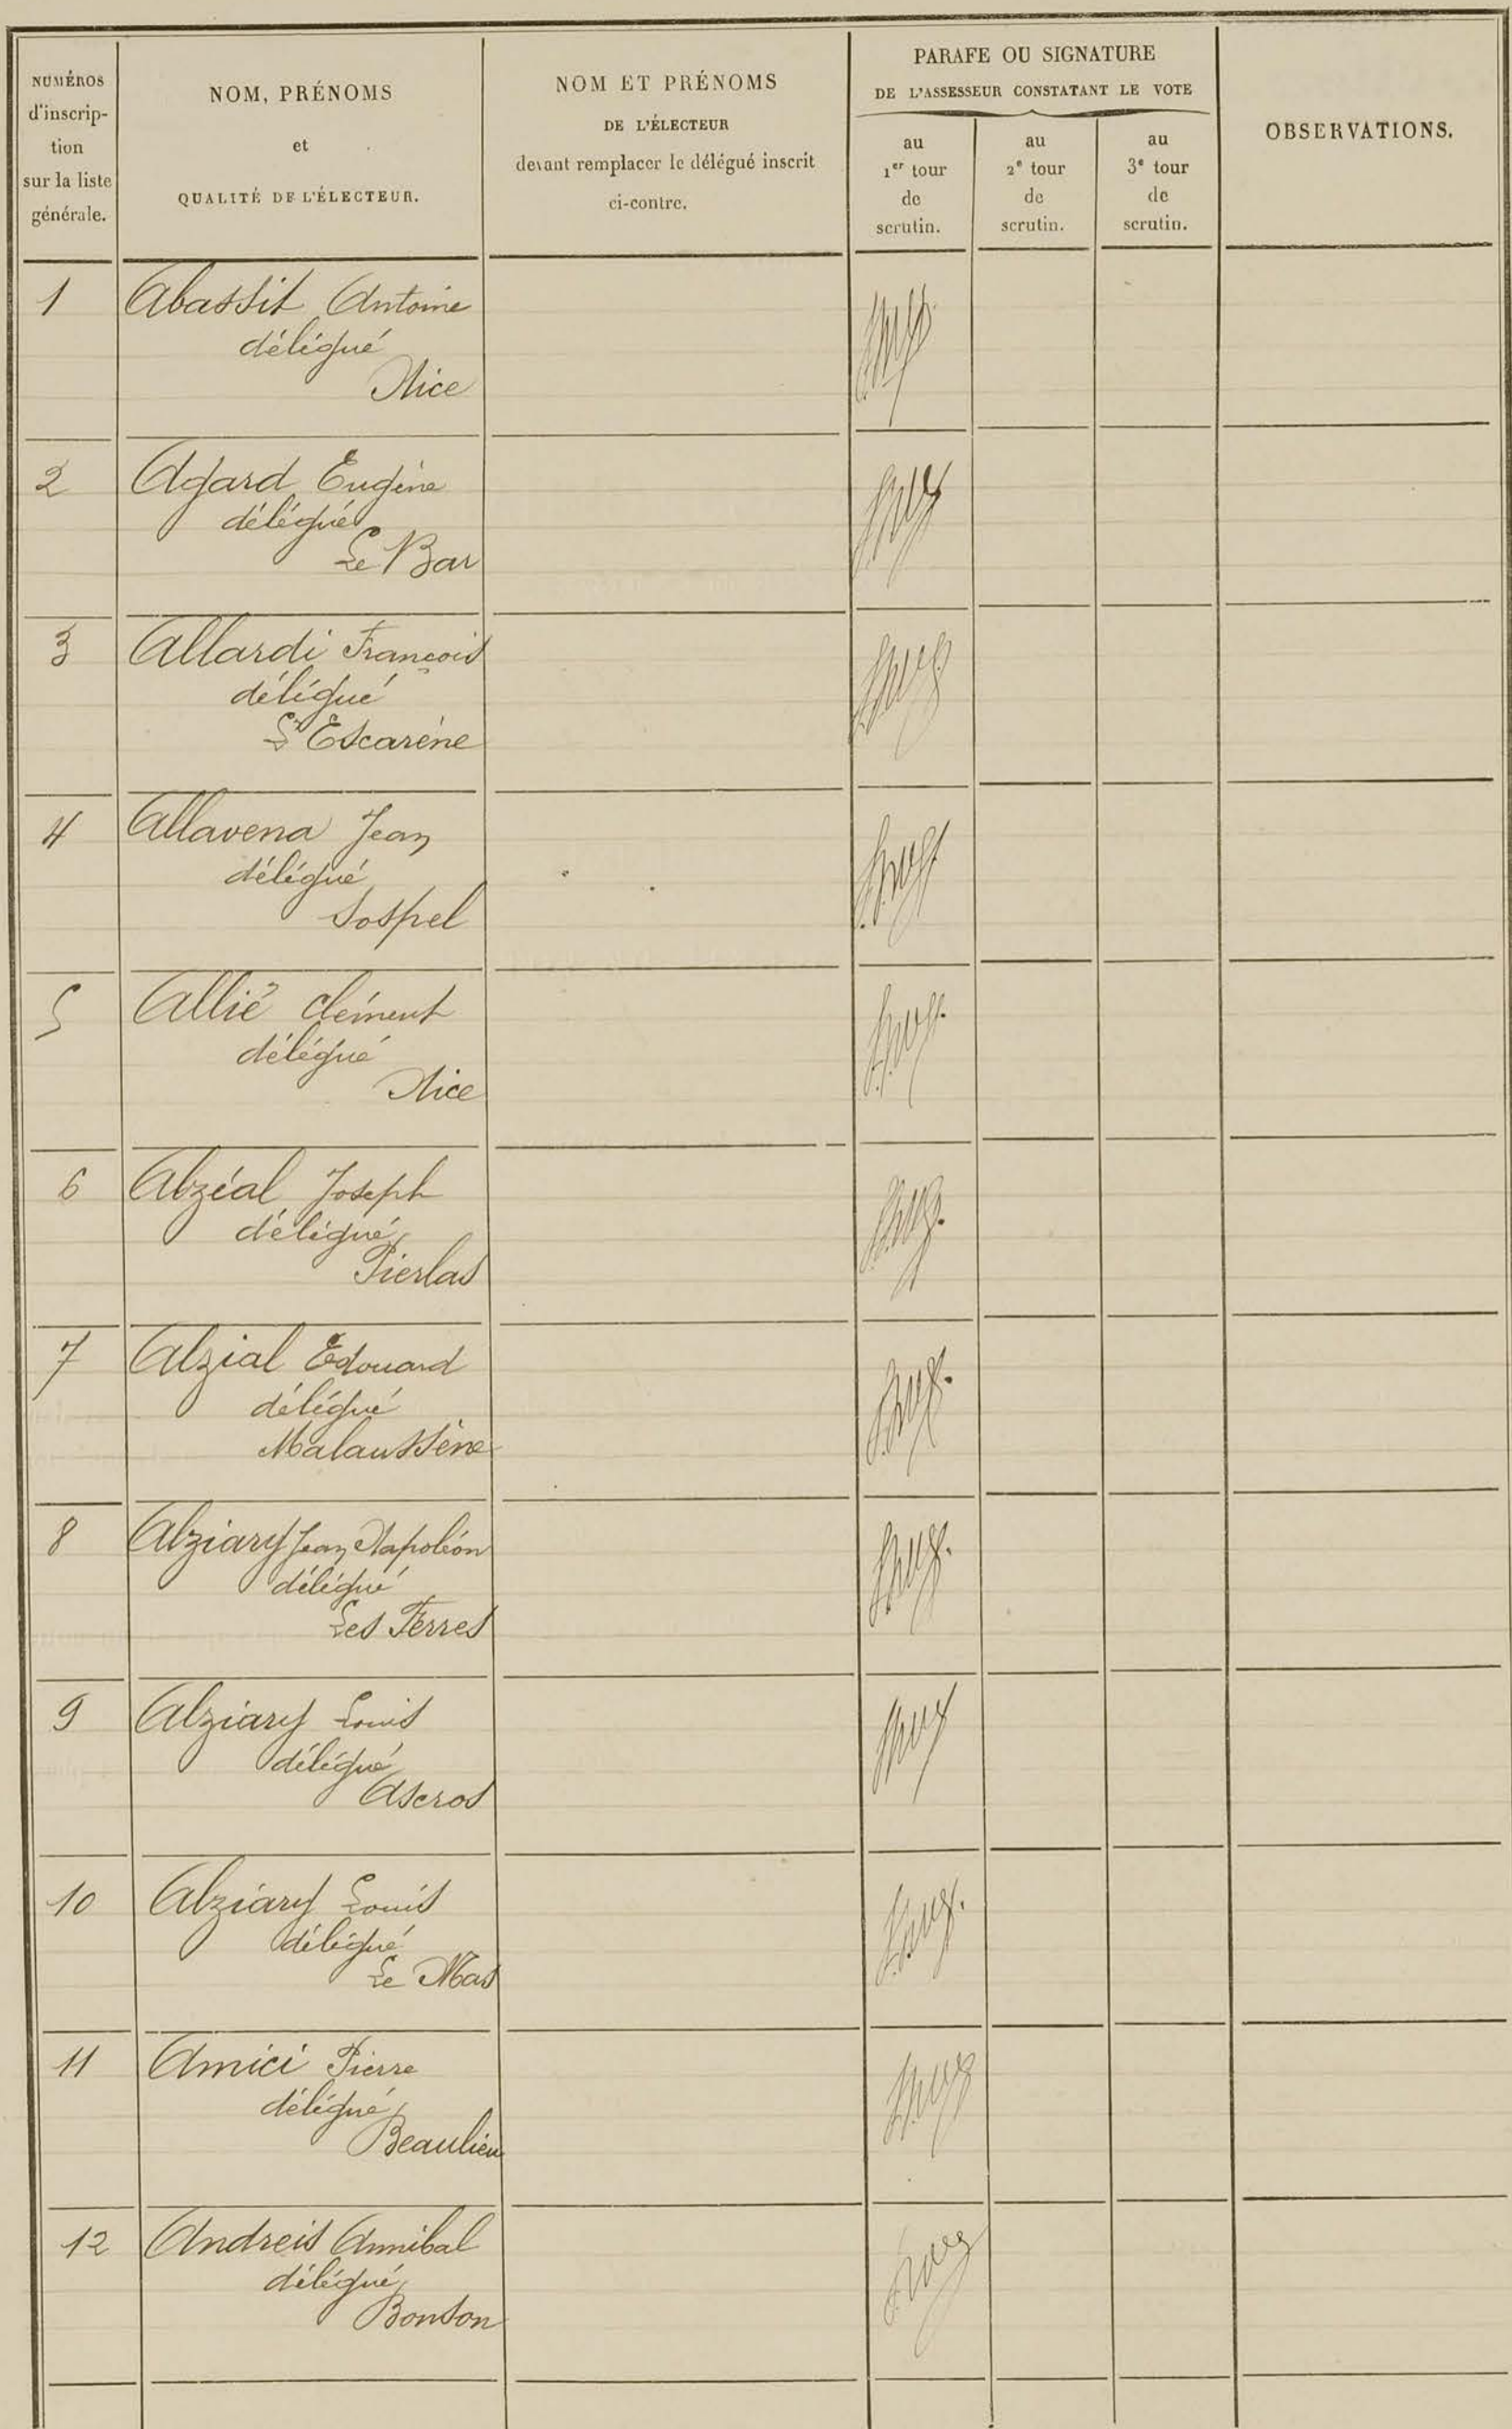 NUMÉROS
d'inscrip-
tion
sur la liste
générale.
NOM, PRÉNOMS
et
QUALITÉ DE L'ÉLECTEUR.
NOM ET PRÉNOMS
DE L'ÉLECTEUR
devant remplacer le délégué inscrit
ci-contre.
PARAFE OU SIGNATURE
DE L'ASSESSEUR CONSTATANT LE VOTE
au
1er tour
de
scrutin.
au
2e tour
de
scrutin.
au
3e tour
de
scrutin.
OBSERVATIONS.
1 Abassit Antoine
délégué
Nice
2 Agard Eugène
délégué
Le Bar
3 Allardi François
délégué
L'Escarène
4 Allavena Jean
délégué
Sospel
5 Allié Clément
délégué
Nice
6 Alzéal Joseph
délégué
Pierlas
7 Alzial Edouard
délégué
Malaussène
8 Alziary Jean Napoléon
délégué
Les Ferres
9 Alziary Louis
délégué
Ascros
10 Alziary Louis
délégué
Le Mas
11 Amici Pierre
délégué
Beaulieu
12 Andreis Annibal
délégué
Bonson